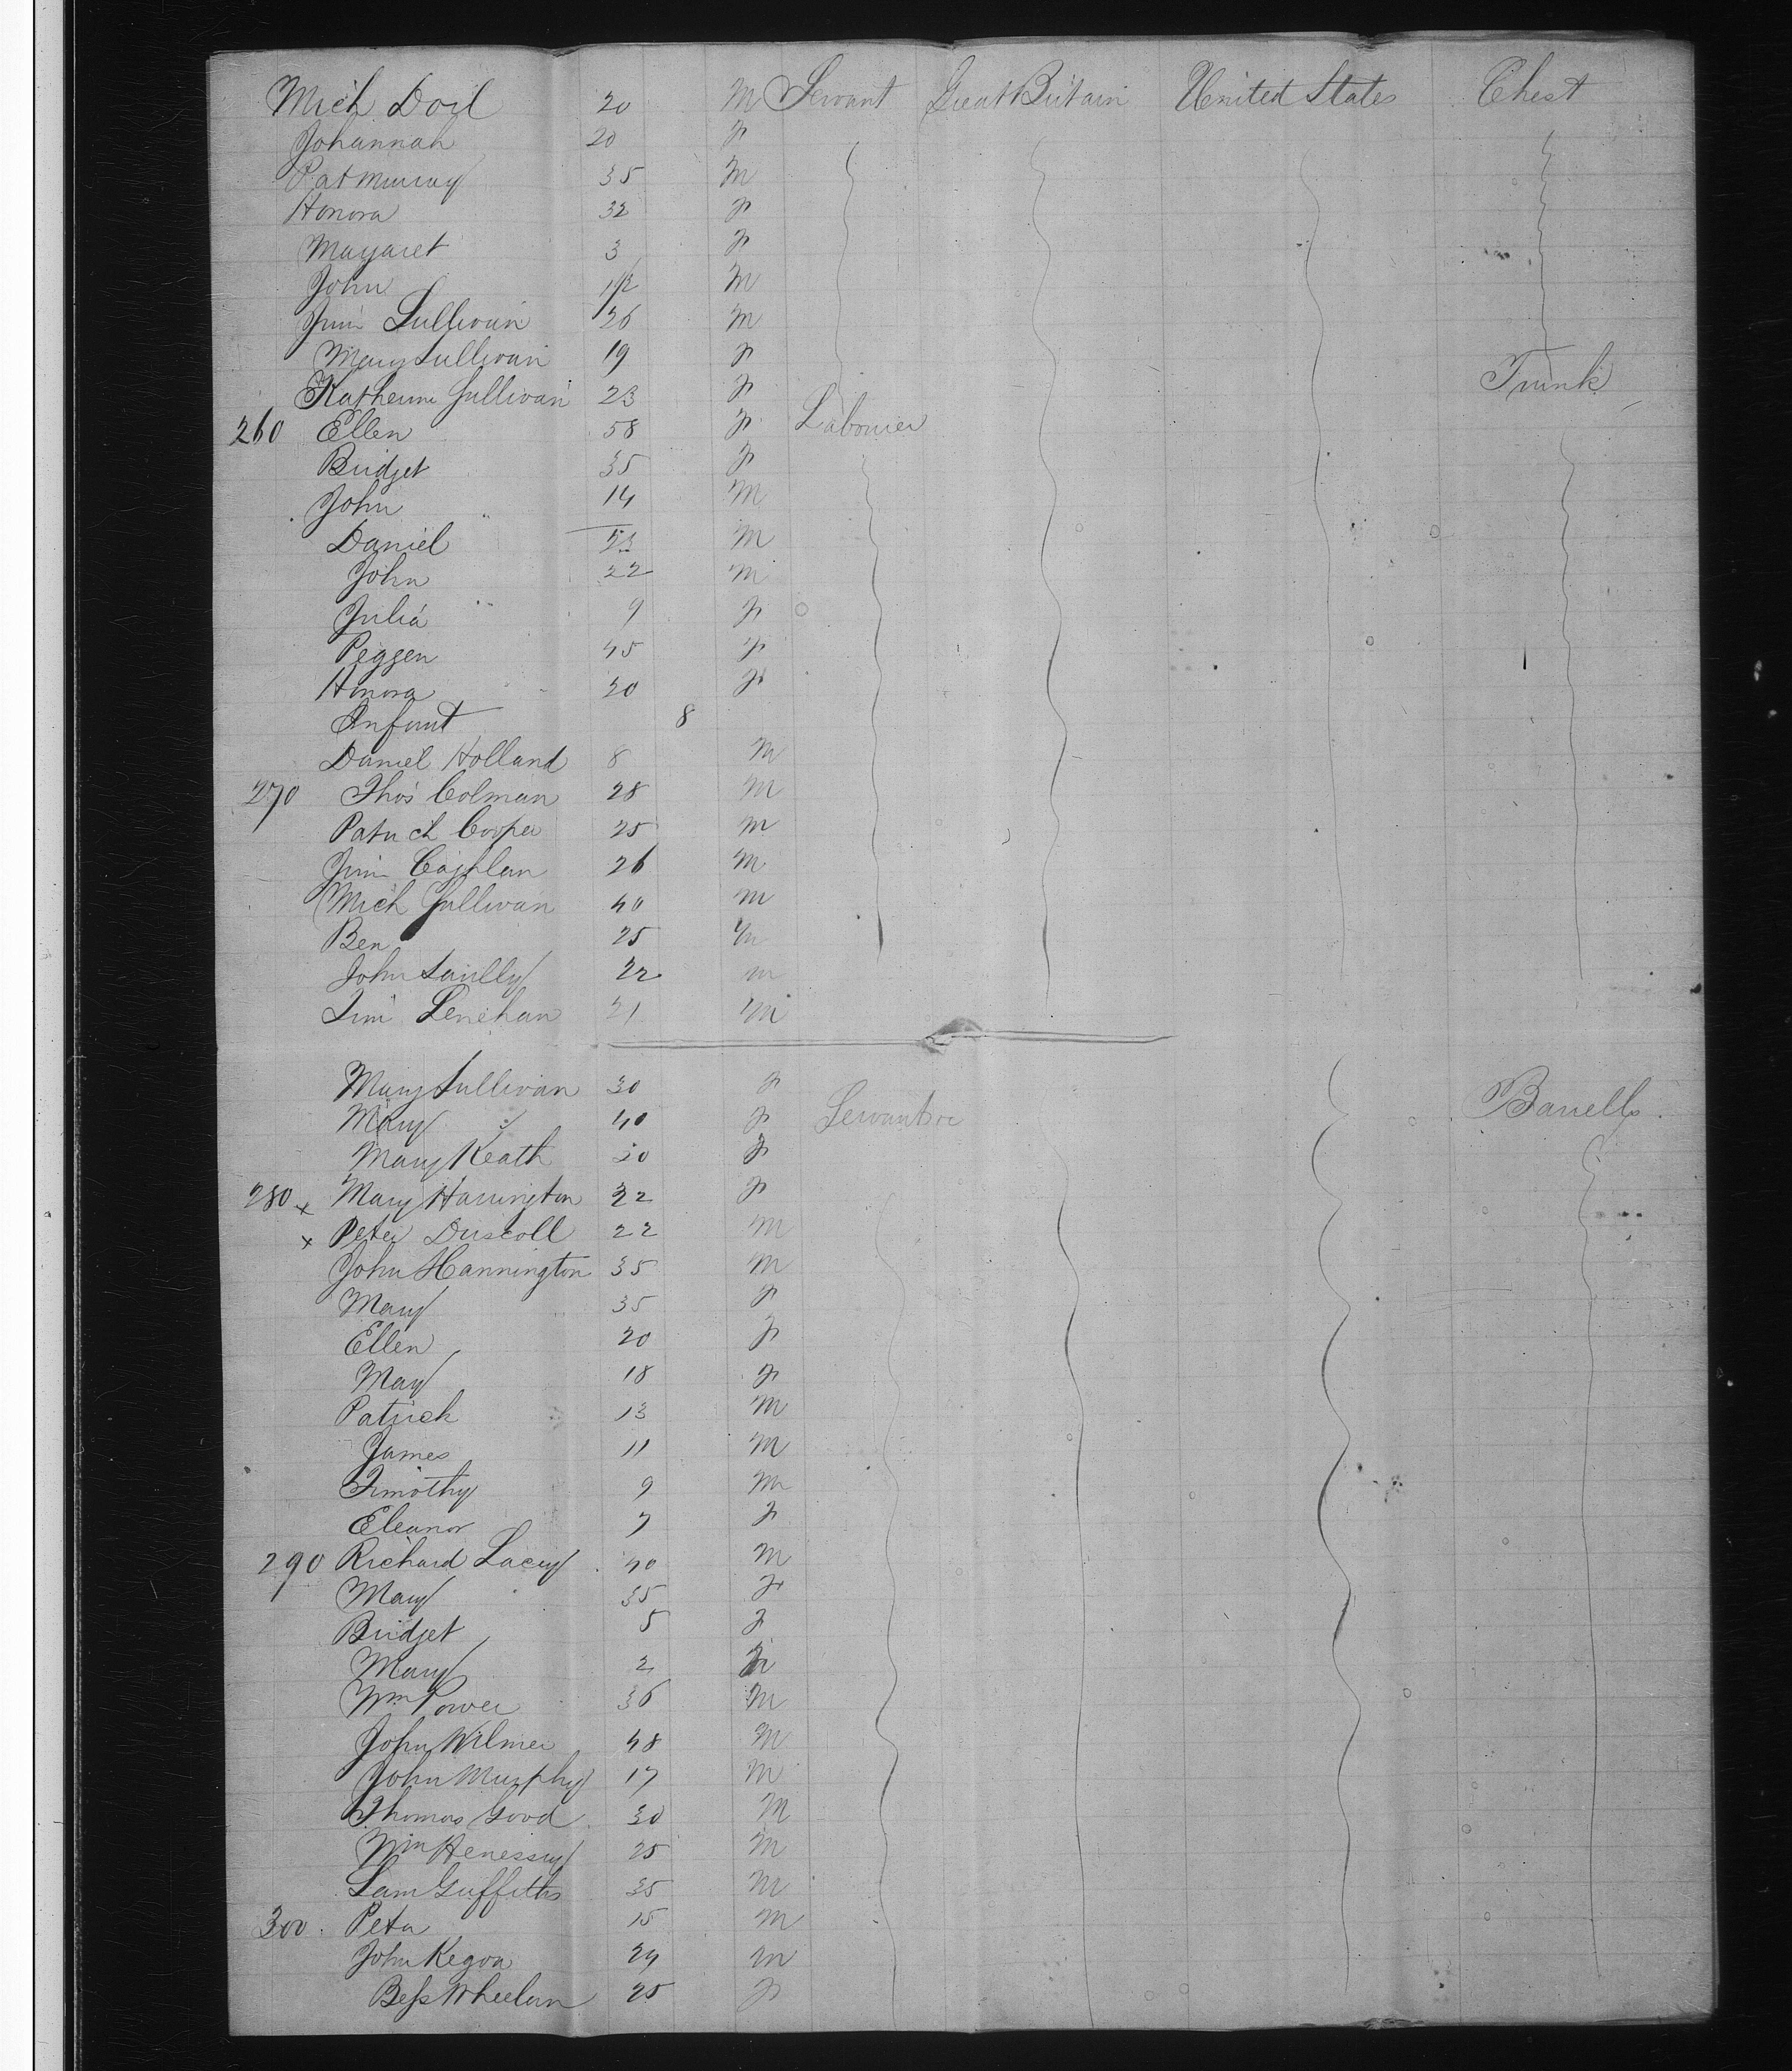 Mich Doil 20 M Servant Great Britain United States Chest
Johannah 20 F
Pat Murray 35 M
Honora 32 F
Margaret 3 F
John 1 1/2 M
Jim Sullivan 26 M
Mary Sullivan 19 F
Katherine Sullivan 23 F Trunk
260 Ellen 58 F Labourer
Bridget 35 F
John 14 M
Daniel M
John 22 M
Julia " 9 F
Peggen 45 F
Honora 20 F
Infant 8
Daniel Holland 8 M
270 Thos Colman 28 M
Patrick Cooper 25 M
Jim 26 M
Mich Sullivan 40 M
Ben 25 M
John 22 M
Tim Lenehan 21 M
Mary Sullivan 30 F
Mary " 40 F Barrells
Mary Keath 30 F
280 x Mary Harrington 32 F
x Peter Driscoll 22 M
John Hannington 35 M
Mary 35 F
Ellen 20 F
May 18 F
Patrick 13 M
James 11 M
Timothy 9 M
Eleanor 7 F
290 Richard Lacey 40 M
Mary 35 F
Bridget 5 F
Mary 2 F
Wm Power 36 M
John Wilmer 48 M
John Murphy 17 M
Thomas Good 30 M
Wm Henessy 25 M
Sam Griffiths 35 M
300 Peter 15 M
John Kegoa 24 M
Bess Wheelan 25 F